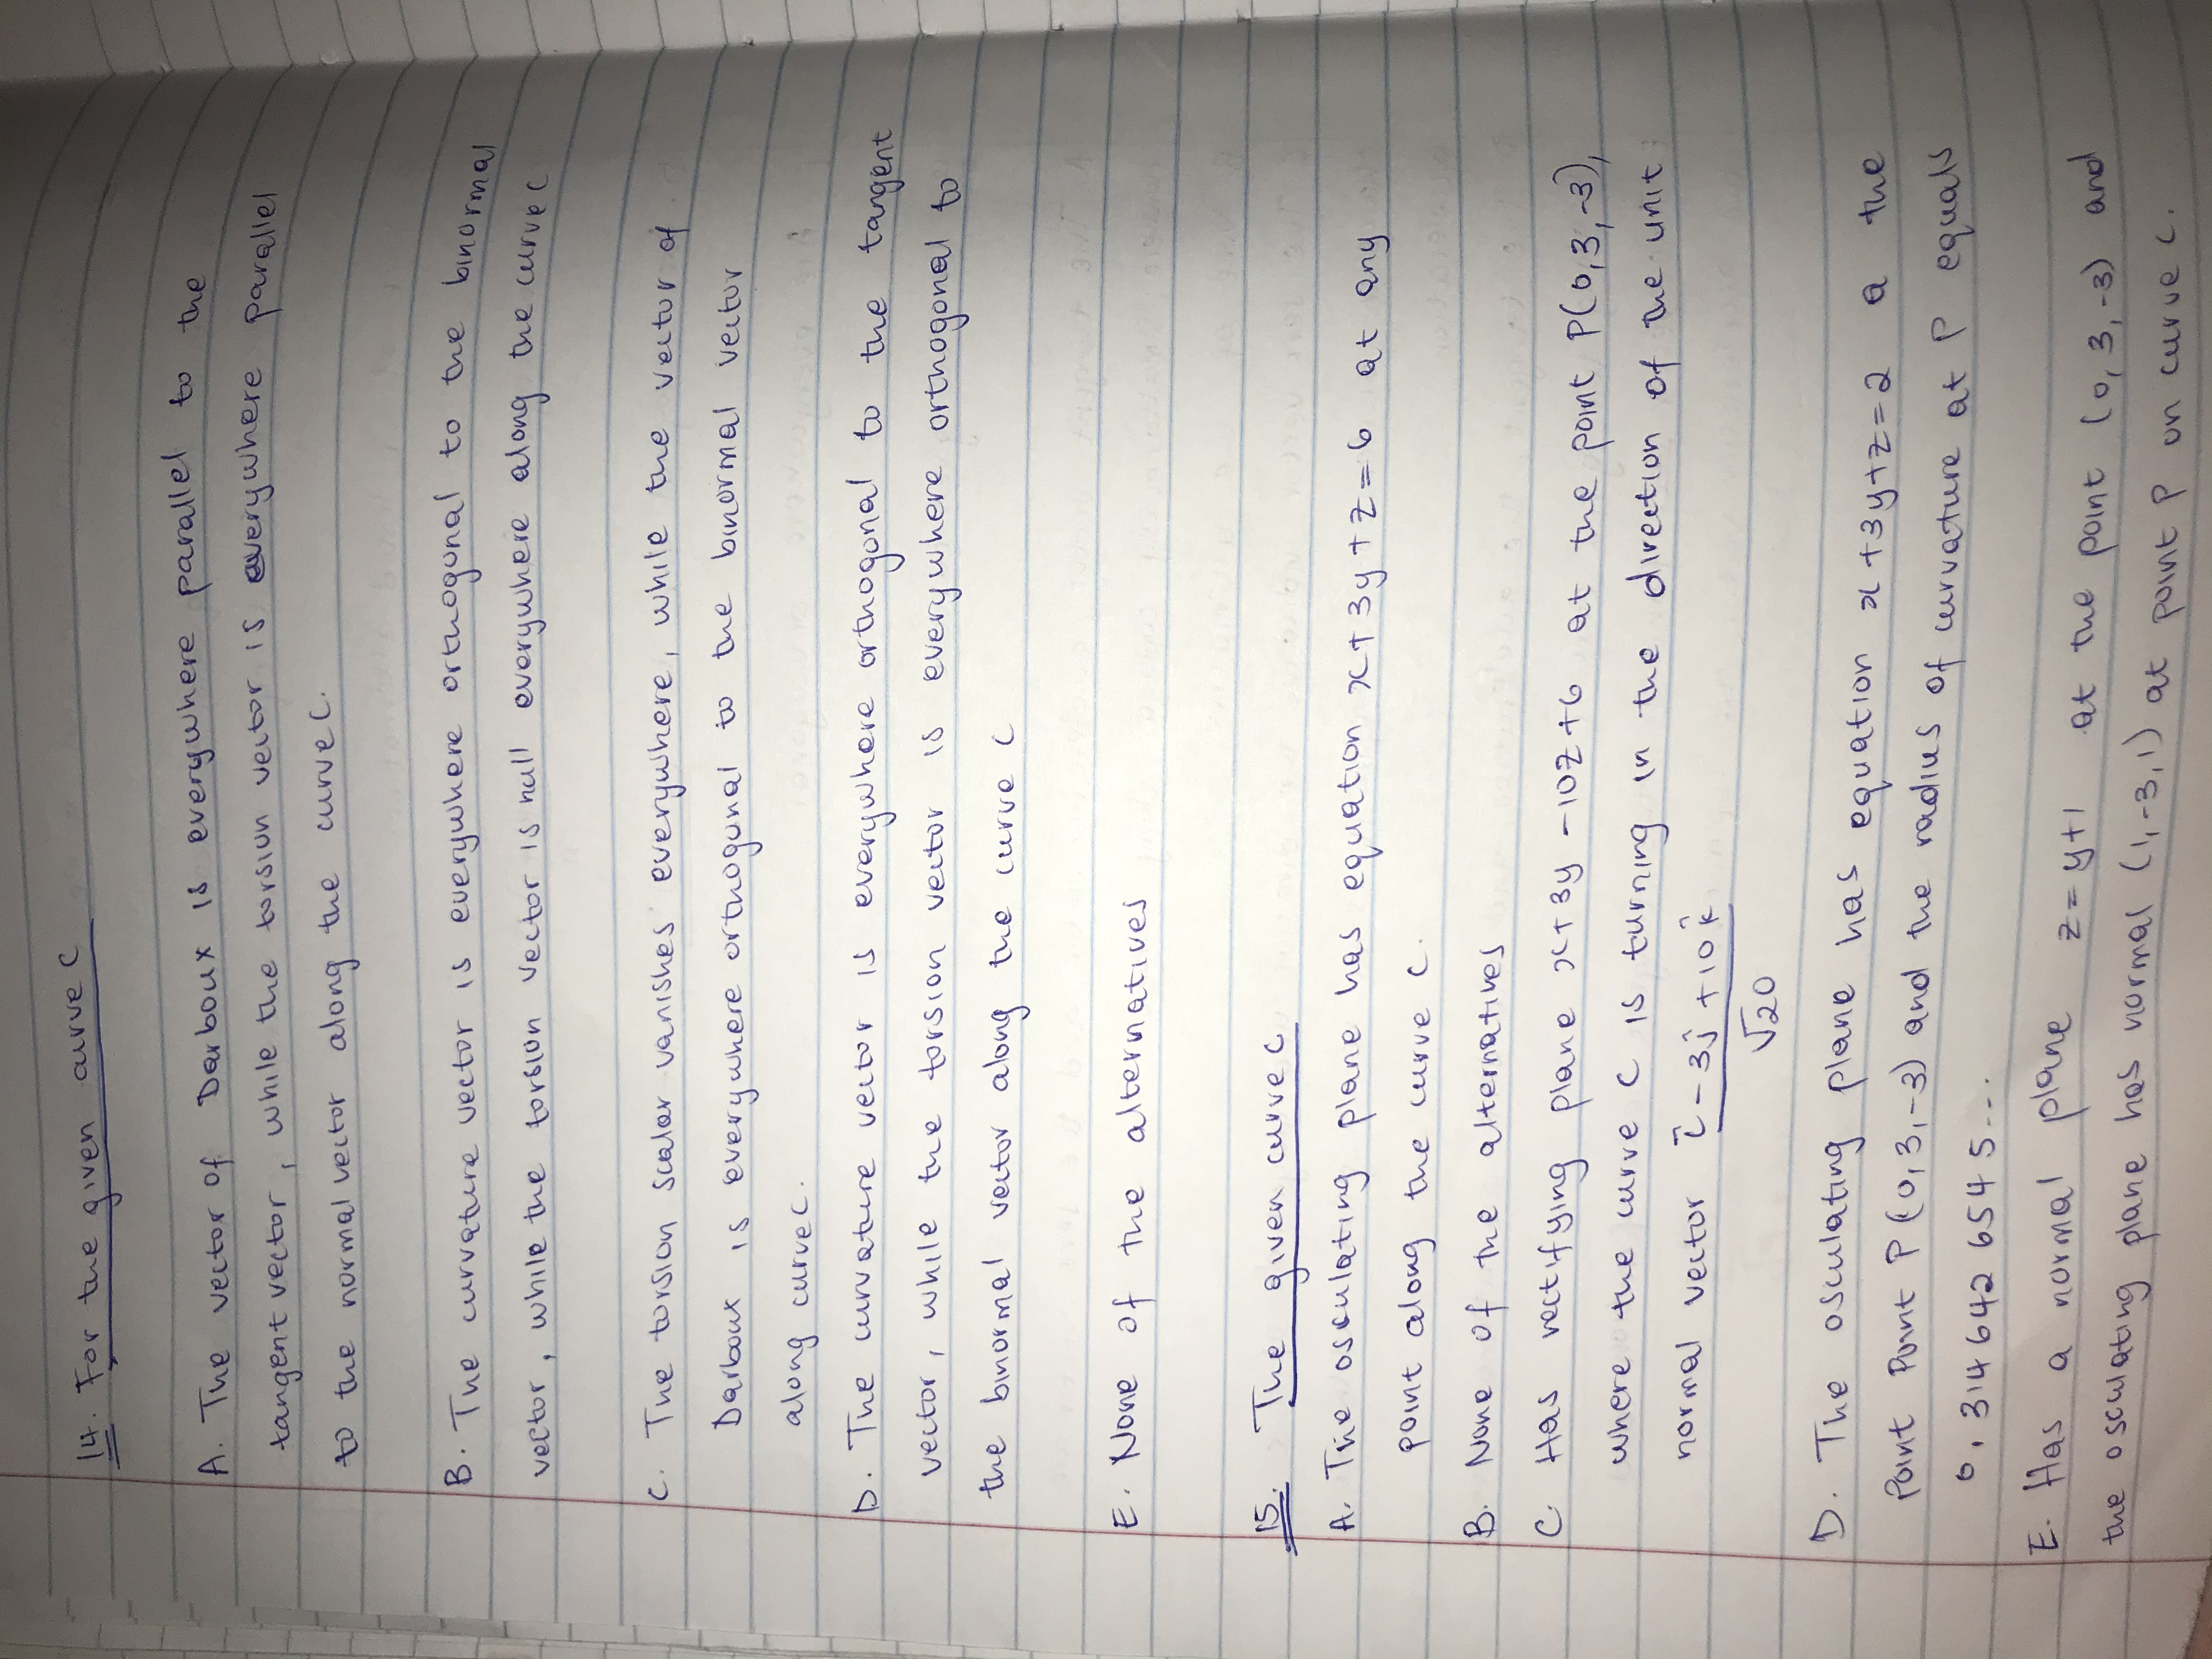 14. For the given curve C
A. The vector of Darboux is everywhere parallel to the
tangent vector, while the torsion vector is everywhere parallel
to the normal vector along the curve C.
B. The curvature vector is everywhere orthogonal to the binormal
vector, while the torsion vector is null everywhere along the curve C
C. The torsion scalar vanishes everywhere, while the vector of
Darboux is everywhere orthogonal to the binormal vector
along curve C.
D. The curvature vector is everywhere orthogonal to the tangent
vector, while the torsion vector is everywhere orthogonal to
the binormal vector along the curve C
E. None of the alternatives
15. The given curve C
A. The osculating plane has equation x+3y+z=6 at any
point along the curve C.
B. None of the alternatives
C. Has rectifying plane x+3y-10z+6 at the point P(0,3,-3),
where the curve C is turning in the direction of the unit
normal vector i-3j+10k
√20
D. The osculating plane has equation x+3y+z=2 a the
Point Point P(0,3,-3) and the radius of curvature at P equals
0,314642 654 5...
E. Has a normal plane z=y+1 at the point (0,3,-3) and
the osculating plane has normal (1,-3,1) at point P on curve C.